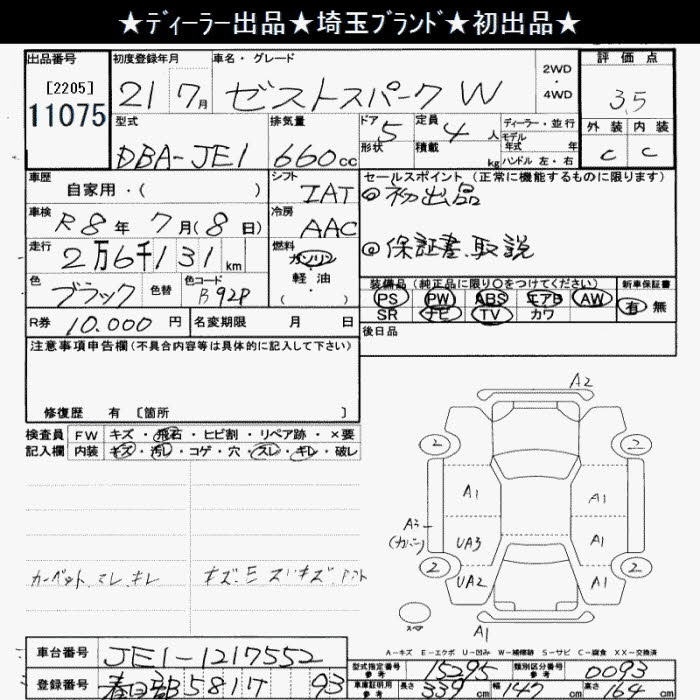 ★ﾃﾞｨｰﾗｰ出品★埼玉ﾌﾞﾗﾝﾄﾞ★初出品★
出品番号 初度登録年月 車名・グレード 評価点
[2205]
11075
21 7月 ゼストスパーク W 2WD・4WD 3.5
型式 排気量 ドア形状 定員 積載 ディーラー・並行 外装 内装
DBA-JE1 660cc 5 4人 kg モデル年式 年 ハンドル 左・右 C C
車歴 シフト セールスポイント(正常に機能するものに限ります)
自家用・( ) IAT ◎初出品
車検 冷房
R8年7月(8日) AAC
走行 燃料
2万6千131km ガソリン 軽油 ( ) ◎保証書、取説
色 色替 色コード 装備品(純正品に限り○をつけてください) 新車保証書
ブラック B92P PS PW ABS エアB AW 有 無
R券 10.000円 名変期限 月 日 SR ナビ TV カワ
注意事項申告欄(不具合内容等は具体的に記入して下さい) 後日品
修復歴 有 〔箇所 〕
検査員 FW キズ・飛石・ヒビ割・リペア跡・×要
記入欄 内装 キズ・汚レ・コゲ・穴・スレ・キレ・破レ
A2
2 2
A1 A1
A3
(カバー) UA3 A1
2 UA2 A1 2
スペア A1
A-キズ E-エクボ U-凹み W-補修跡 S-サビ C-腐食 XX-交換済
車台番号 JE1-1217552
型式指定番号 参考 15295 類別区分番号 参考 0093
登録番号 春日部581 93
車庫証明用 参考 長さ 339cm 幅 147cm 高さ 164cm